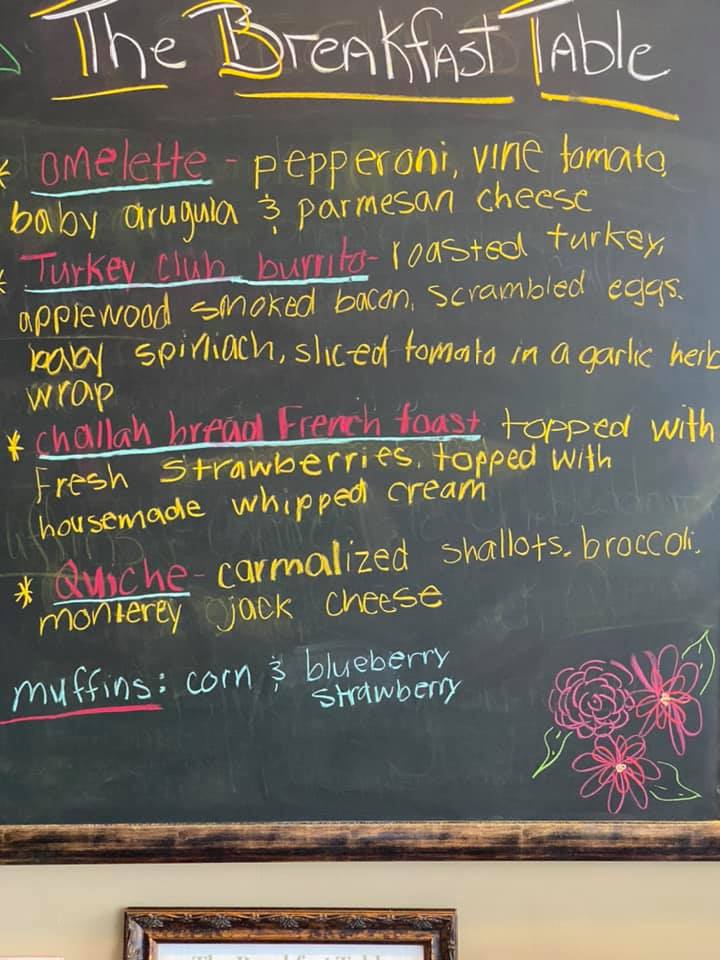 The Breakfast Table
* omelette - pepperoni, vine tomato,
baby arugula & parmesan cheese
* Turkey club burrito - roasted turkey,
applewood smoked bacon, scrambled eggs.
baby spiniach, sliced tomato in a garlic herb
wrap
* challah bread French toast topped with
Fresh strawberries. topped with
housemade whipped cream
* Quiche - carmalized shallots. broccoli.
monterey jack cheese
muffins: corn & blueberry
strawberry
The Breakfast Table